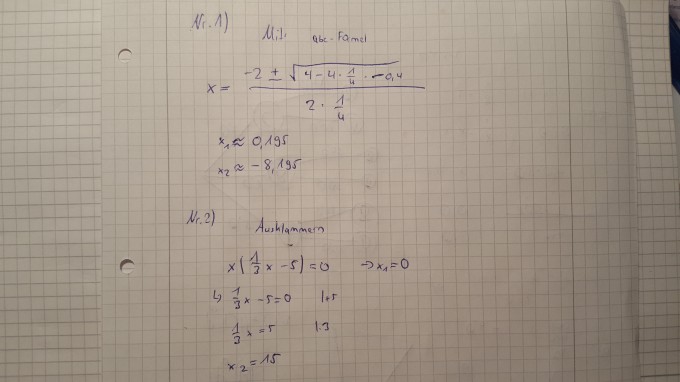 Nr. 1)
Mit abc-Formel
x = (-2 ± √(4 - 4 · 1/4 · -0,4)) / (2 · 1/4)
x₁ ≈ 0,195
x₂ ≈ -8,195
Nr. 2)
Ausklammern
x(1/3 x - 5) = 0 → x₁ = 0
↳ 1/3 x - 5 = 0 |+5
1/3 x = 5 |·3
x₂ = 15